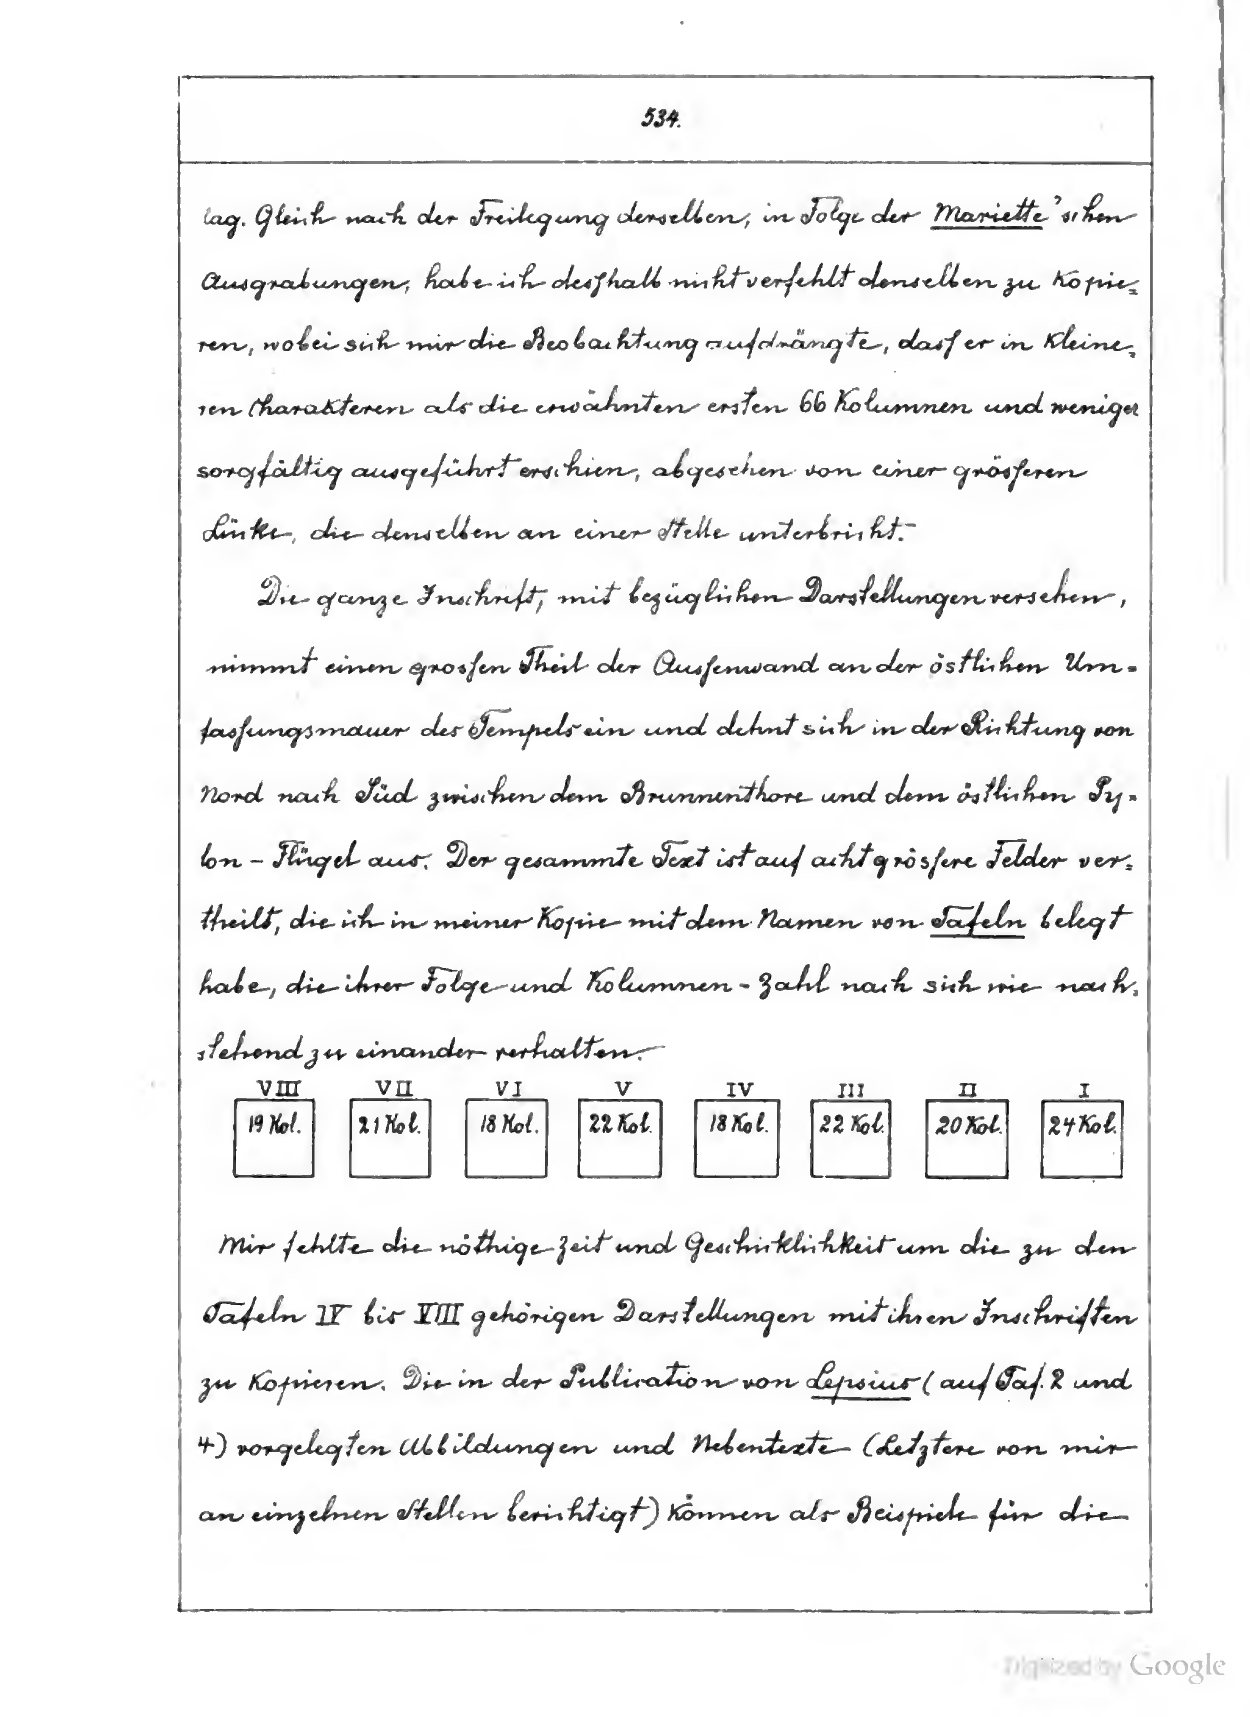 534.
lag. Gleich nach der Freilegung derselben, in Folge der Mariette'schen
Ausgrabungen, habe ich desshalb nicht verfehlt denselben zu kopie-
ren, wobei sich mir die Beobachtung aufdrängte, dass er in kleine-
ren Charakteren als die erwähnten ersten 66 Kolumnen und weniger
sorgfältig ausgeführt erschien, abgesehen von einer grösseren
Lücke, die denselben an einer Stelle unterbricht.-
Die ganze Inschrift, mit bezüglichen Darstellungen versehen,
nimmt einen grossen Theil der Aussenwand an der östlichen Um-
fassungsmauer des Tempels ein und dehnt sich in der Richtung von
Nord nach Süd zwischen dem Brunnenthore und dem östlichen Py-
lon - Flügel aus. Der gesammte Text ist auf acht grössere Felder ver-
theilt, die ich in meiner Kopie mit dem Namen von Tafeln belegt
habe, die ihrer Folge und Kolumnen - Zahl nach sich wie nach-
stehend zu einander verhalten.-
VIII VII VI V IV III II I
19 Kol. 21 Kol. 18 Kol. 22 Kol. 18 Kol. 22 Kol. 20 Kol. 24 Kol.
Mir fehlte die nöthige Zeit und Geschicklichkeit um die zu den
Tafeln IV bis VIII gehörigen Darstellungen mit ihren Inschriften
zu kopieren. Die in der Publication von Lepsius (auf Taf. 2 und
4) vorgelegten Abbildungen und Nebentexte (Letztere von mir
an einzelnen Stellen berichtigt) können als Beispiele für die
Digitized by Google